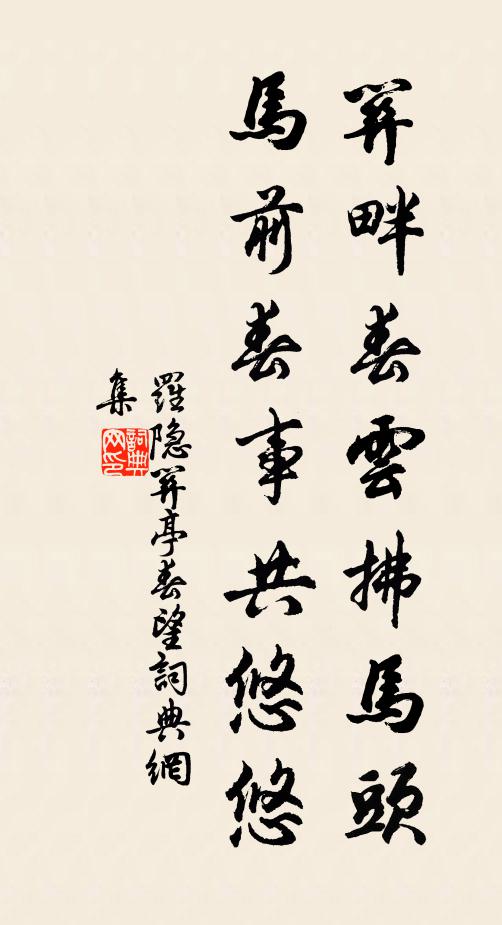 關畔春雲拂馬頭
馬前春事共悠悠
羅隐關亭春望詞典網
集
詞典网印